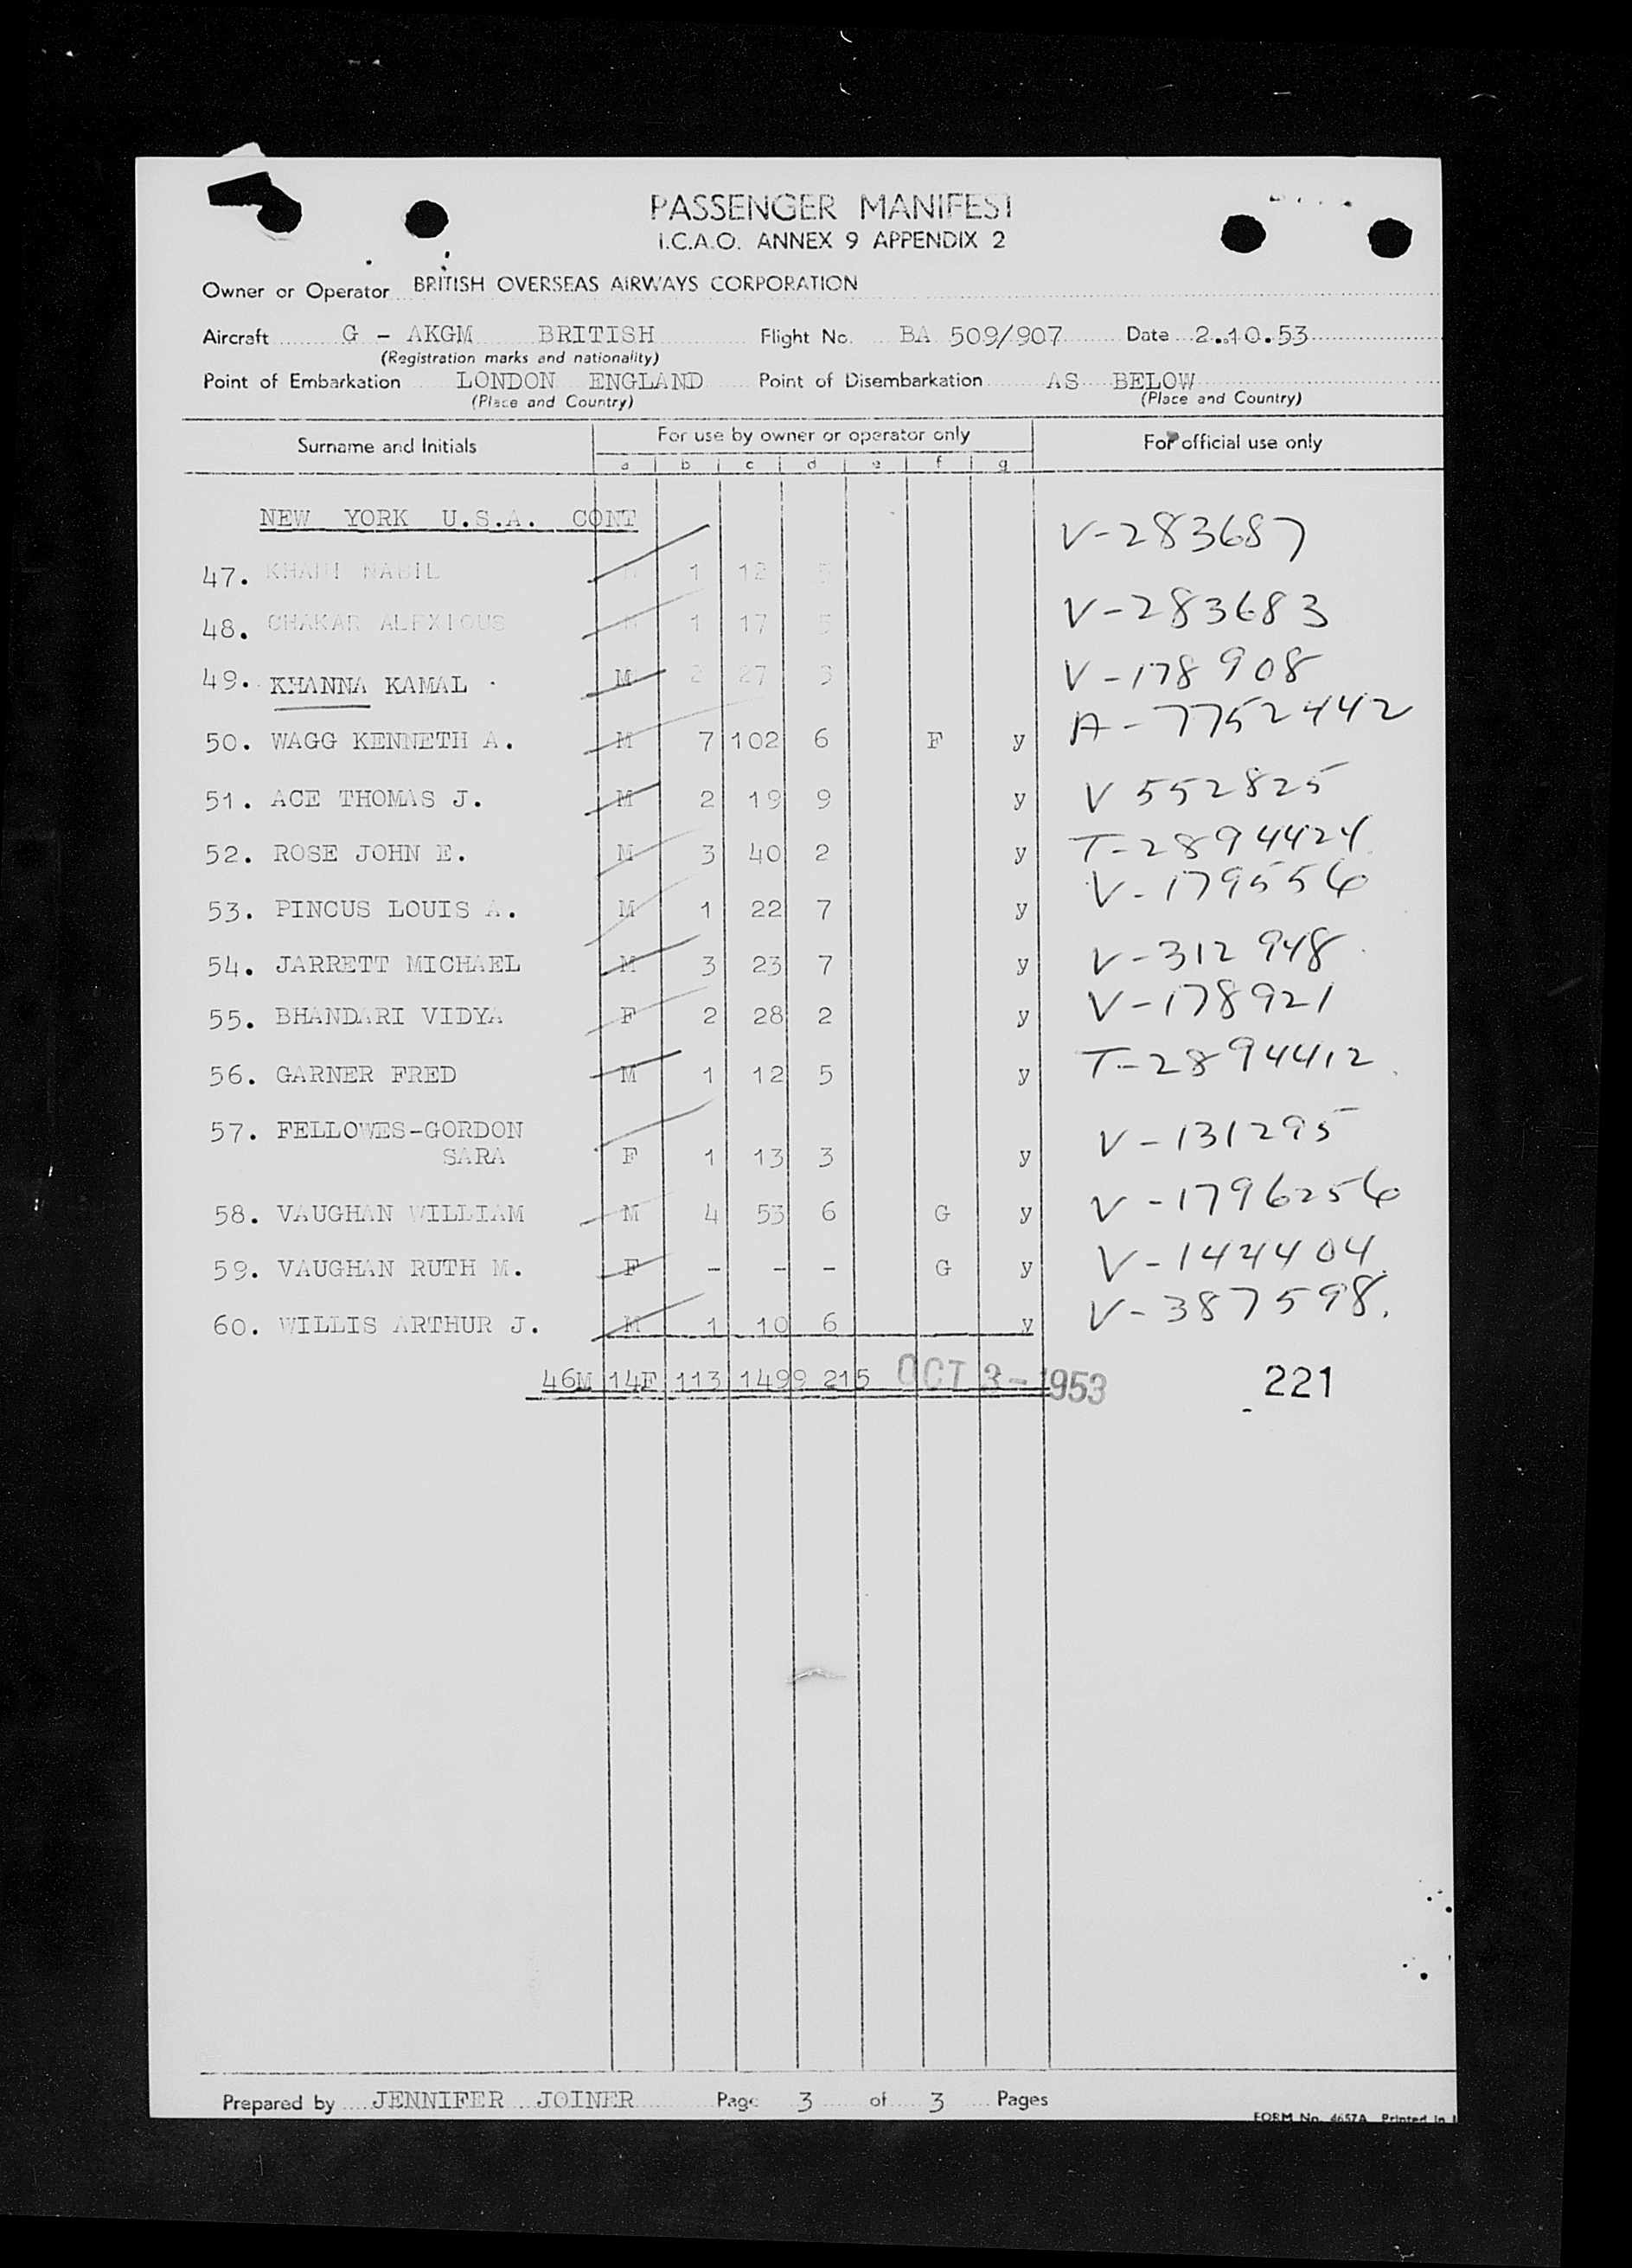 PASSENGER MANIFEST
I.C.A.O. ANNEX 9 APPENDIX 2
Owner or Operator BRITISH OVERSEAS AIRWAYS CORPORATION
Aircraft G - AKGM BRITISH Flight No. BA 509/907 Date 2.10.53
(Registration marks and nationality)
Point of Embarkation LONDON ENGLAND Point of Disembarkation AS BELOW
(Place and Country) (Place and Country)
Surname and Initials For use by owner or operator only For official use only
a b c d e f g
NEW YORK U.S.A. CONT
47. NABIL 1 12 5 V-283687
48. CHAKAR ALEXIOUS M 1 17 5 V-283683
49. KHANNA KAMAL M 2 27 3 V-178908
50. WAGG KENNETH A. M 7 102 6 F y A-7752442
51. ACE THOMAS J. M 2 19 9 y V 552825
52. ROSE JOHN E. M 3 40 2 y T-2894424
53. PINCUS LOUIS A. M 1 22 7 y V-179556
54. JARRETT MICHAEL M 3 23 7 y V-312948
55. BHANDARI VIDYA F 2 28 2 y V-178921
56. GARNER FRED M 1 12 5 y T-2894412
57. FELLOWES-GORDON
SARA F 1 13 3 y V-131295
58. VAUGHAN WILLIAM M 4 53 6 G y V-1796256
59. VAUGHAN RUTH M. F - - - G y V-142404
60. WILLIS ARTHUR J. M 1 10 6 y V-387598.
46M 14F 113 1499 215 OCT 3-1953 221
Prepared by JENNIFER JOINER Page 3 of 3 Pages
FORM No. 4657A Printed in